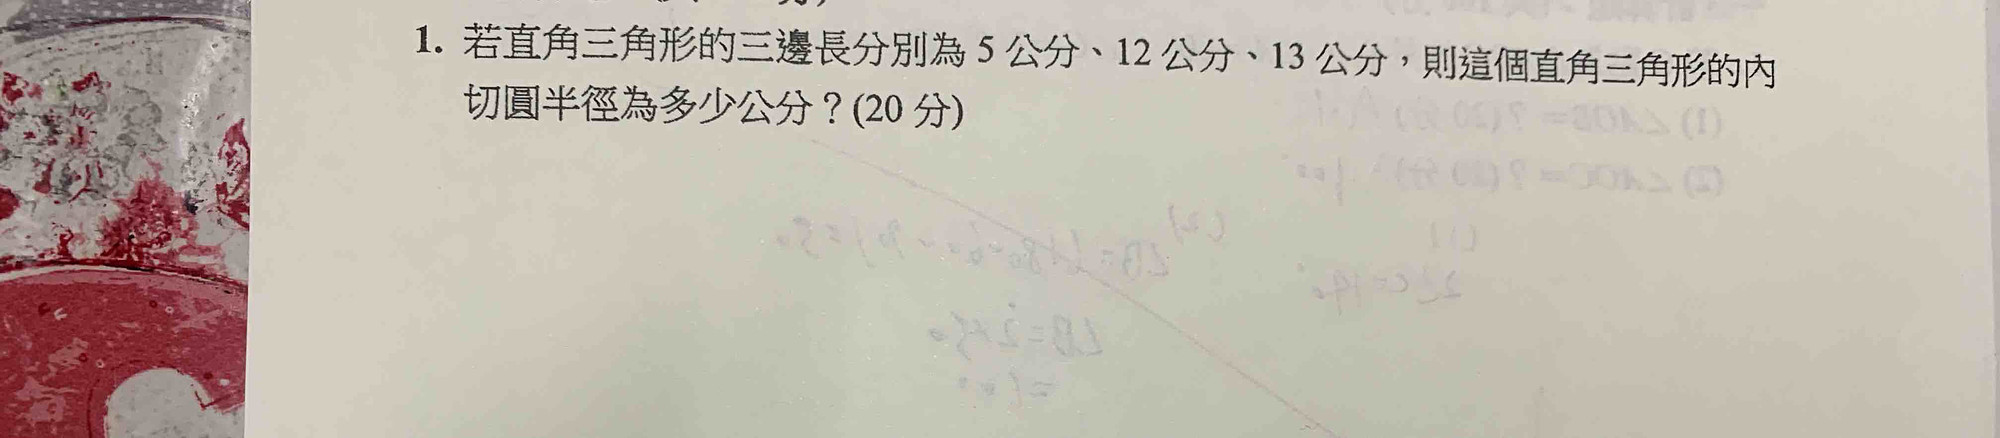 1. 若直角三角形的三邊長分別為 5 公分、12 公分、13 公分，則這個直角三角形的內
切圓半徑為多少公分？(20 分)
(1) ∠AOB = ？(20 分)
(2) ∠AOC = ？(20 分)